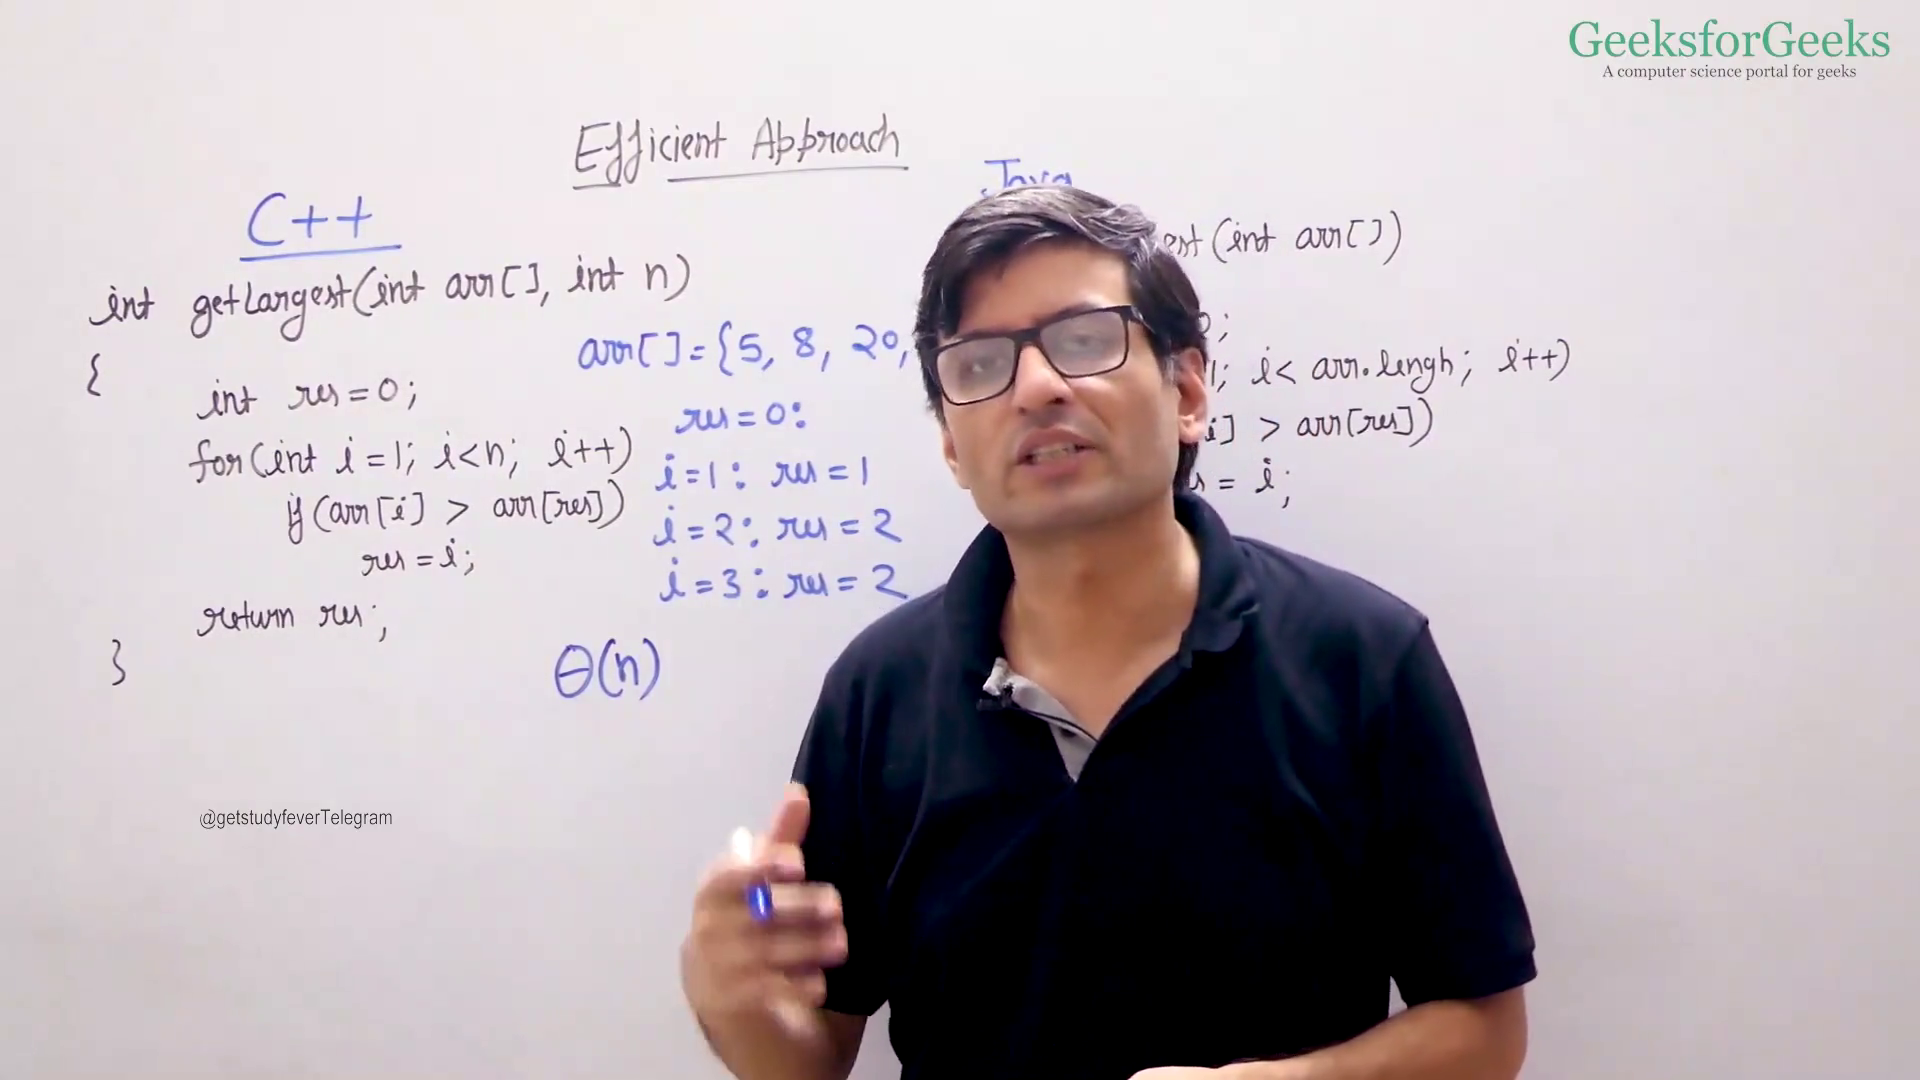 GeeksforGeeks
A computer science portal for geeks
Efficient Approach
C++
int getLargest(int arr[], int n)
{
int res=0;
for(int i=1; i<n; i++)
if(arr[i] > arr[res])
res=i;
return res;
}
arr[]={5, 8, 20,
res=0:
i=1: res=1
i=2: res=2
i=3: res=2
Θ(n)
Java
est(int arr[])
0;
1; i< arr.lengh; i++)
i] > arr[res])
s = i;
@getstudyfeverTelegram